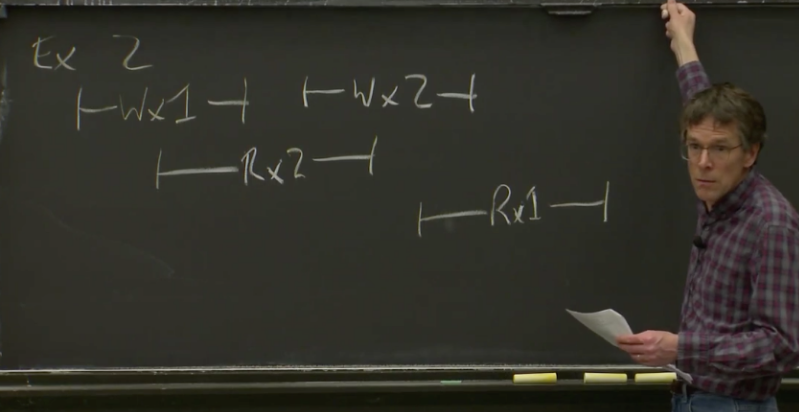 Ex 2
|-Wx1-| |-Wx2-|
|-Rx2-|
|-Rx1-|